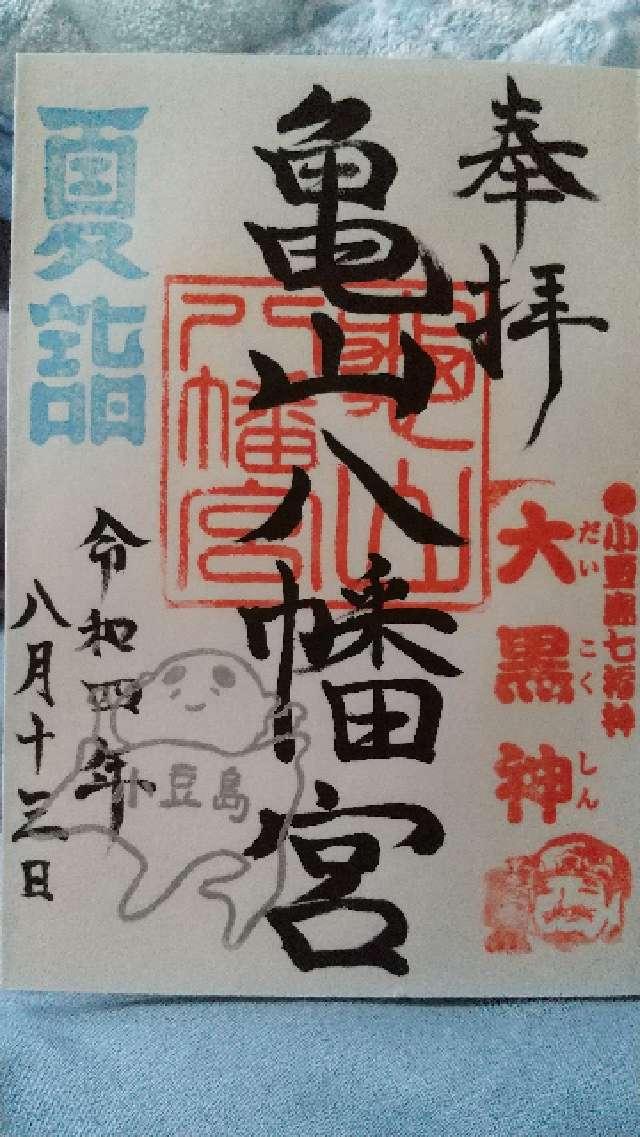 奉拝
●小豆島七福神
大黒神
だいこくしん
亀山八幡宮
亀山
八幡宮
夏詣
令和四年
八月十三日
小豆島